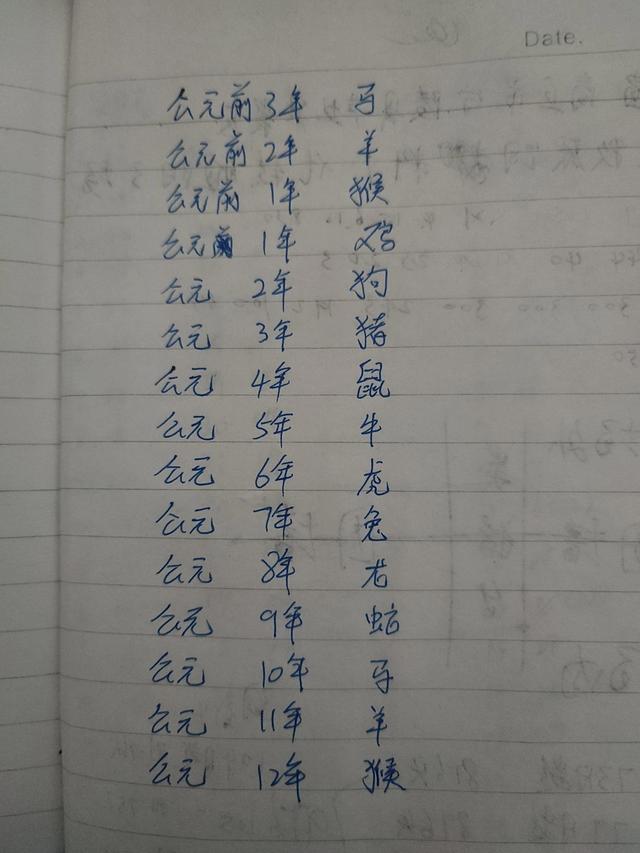 Date.
公元前 3年 马
公元前 2年 羊
公元前 1年 猴
公元 1年 鸡
公元 2年 狗
公元 3年 猪
公元 4年 鼠
公元 5年 牛
公元 6年 虎
公元 7年 兔
公元 8年 龙
公元 9年 蛇
公元 10年 马
公元 11年 羊
公元 12年 猴